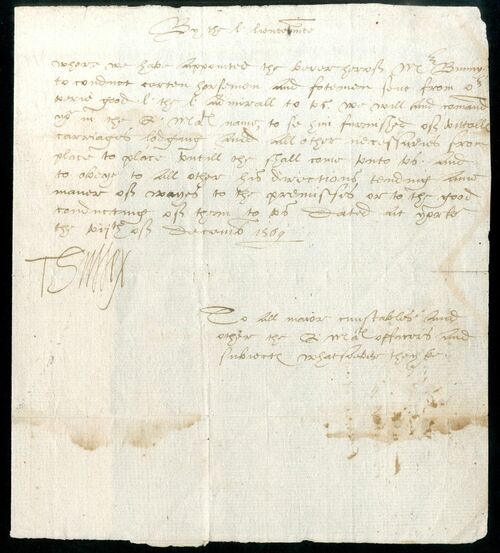 By the l lieutennte
where we have appointed the berer hereof Mr Bunny
to conduct certen horsemen and fotemen sent from or
verie good l the l admirall to us we will and comand
you in the Q Mats name, to se him furnished of vittall
carriages lodging and all other necessaries from
place to place untill the shall come unto us and
to obeye to all other his directions tending anie
maner of wayes to the premisses or to the good
conducting of them to us Dated at yorke
the viith of Decemb 1569
T Sussex
To all maior cunstables and
other the Q Mats officers and
subiects whatsoever they be.